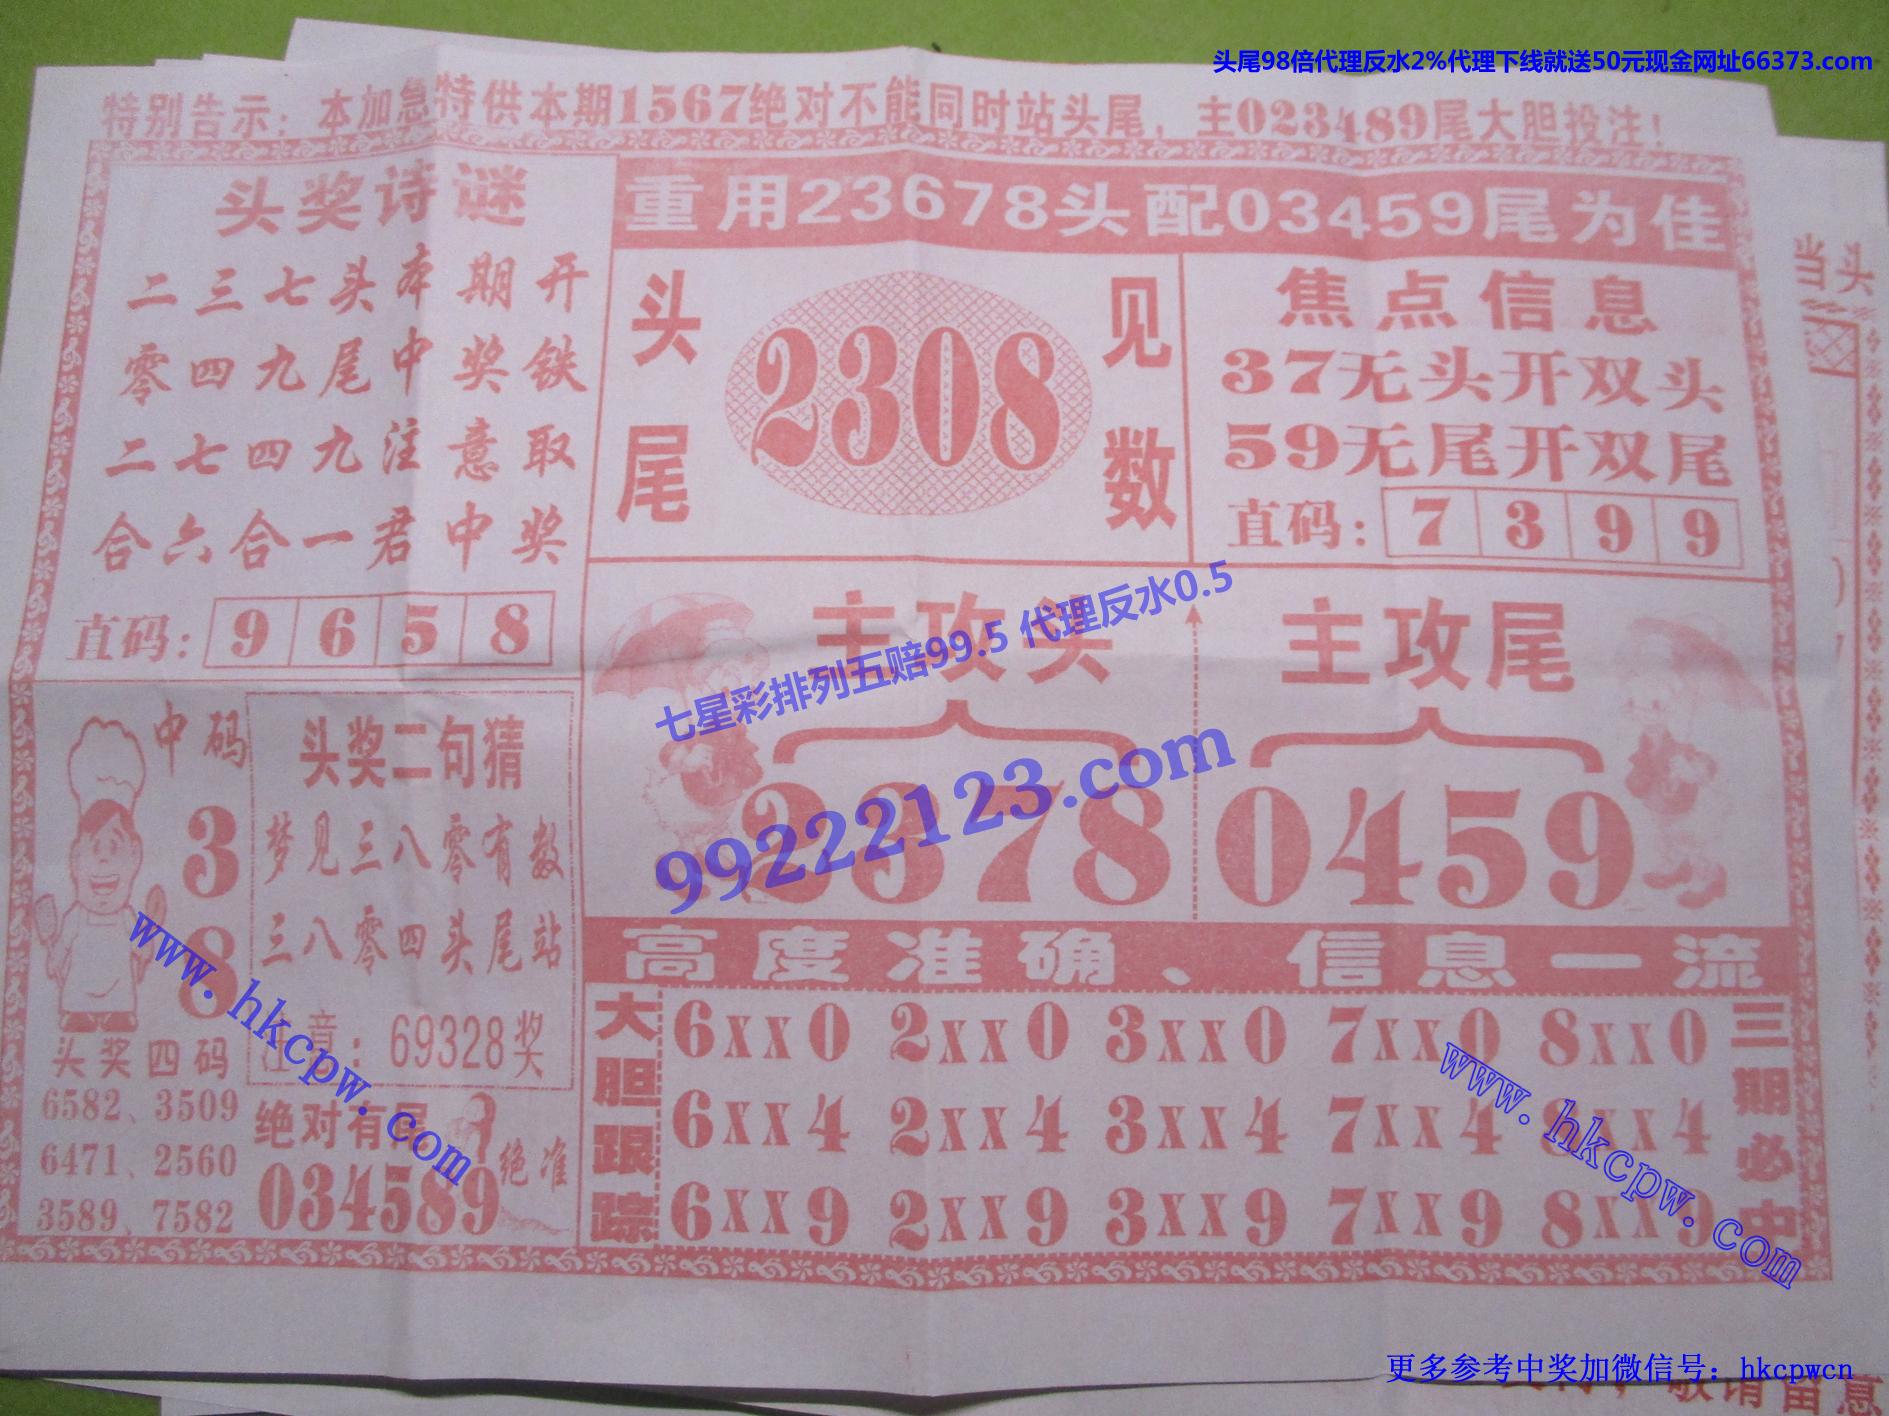 头尾98倍代理反水2%代理下线就送50元现金网址66373.com
特别告示：本加急特供本期1567绝对不能同时站头尾，主023489尾大胆投注！
头奖诗谜
二三七头本期开
零四九尾中奖铁
二七四九注意取
合六合一君中奖
直码：9658
重用23678头配03459尾为佳
头尾
2308
见数
焦点信息
37无头开双头
59无尾开双尾
直码：7399
当头
主攻头
2378
主攻尾
0459
七星彩排列五赔99.5 代理反水0.5
99222123.com
中码
3
8
头奖四码
6582、3509
6471、2560
3589、7582
头奖二句猜
梦见三八零有数
三八零四头尾站
注意：69328奖
绝对有尾
034589
绝准
www.hkcpw.com
高度准确、信息一流
大胆跟踪
6xx0 2xx0 3xx0 7xx0 8xx0
6xx4 2xx4 3xx4 7xx4 8xx4
6xx9 2xx9 3xx9 7xx9 8xx9
三期必中
www.hkcpw.com
更多参考中奖加微信号：hkcpwcn
敬请留意